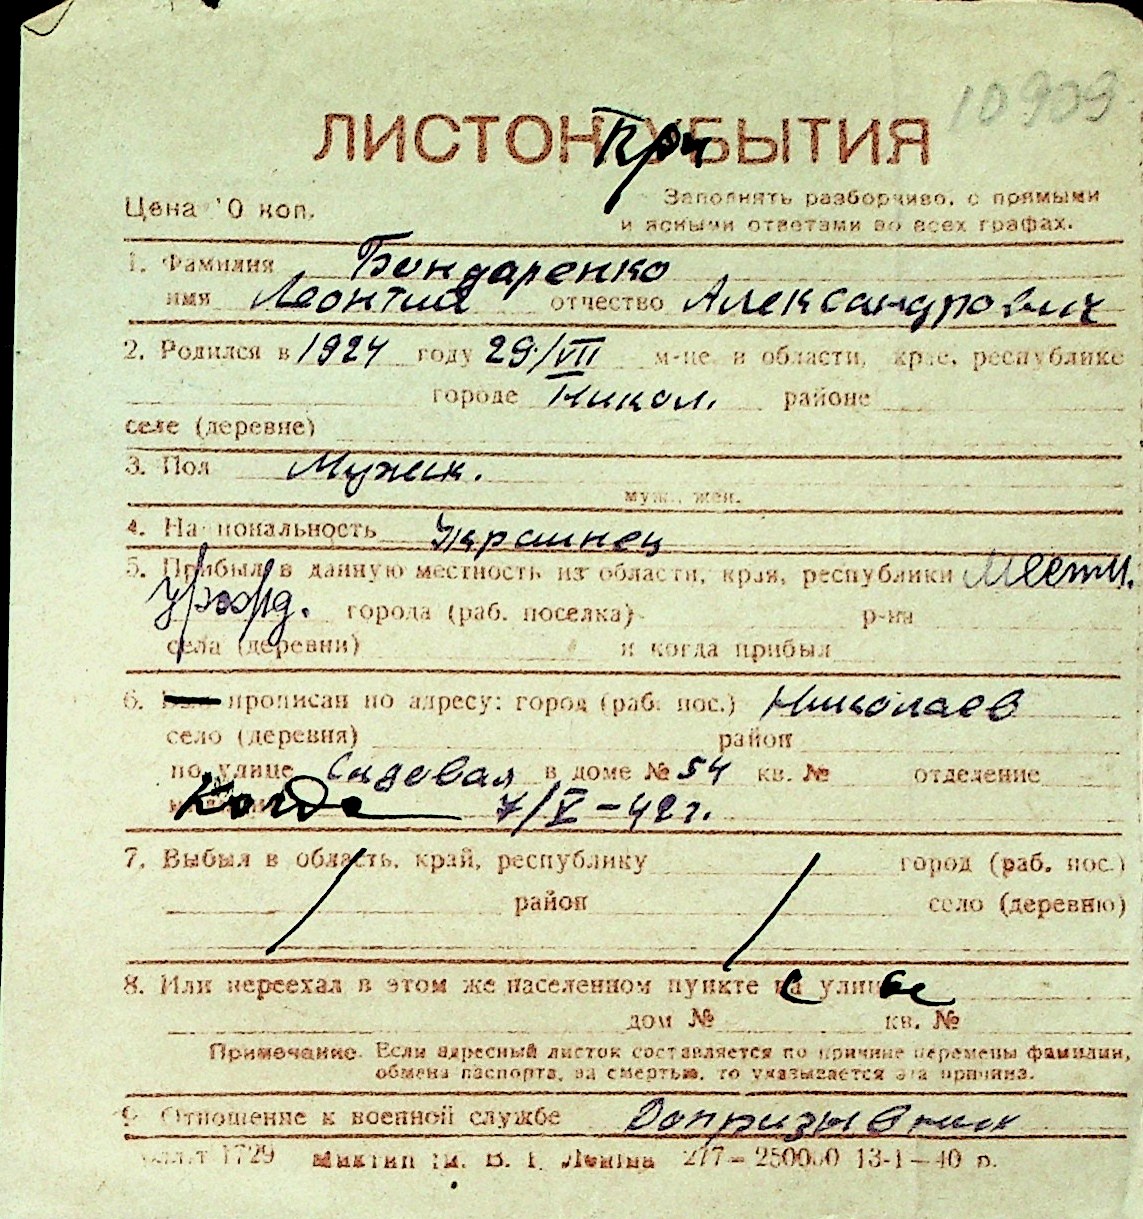 10909
ЛИСТОК УБЫТИЯ
При
Цена 10 коп.
Заполнять разборчиво, с прямыми
и ясными ответами во всех графах.
1. Фамилия Бондаренко
имя Леонтий отчество Александрович
2. Родился в 1924 году 29/VII м-це в области, крае, республике
городе Никол. районе
селе (деревне)
3. Пол Мужск.
муж., жен.
4. Национальность Украинец
5. Прибыл в данную местность из области, края, республики Местн.
урожд. города (раб. поселка) р-на
села (деревни) и когда прибыл
6. прописан по адресу: город (раб. пос.) Николаев
село (деревня) район
по улице Садовая в доме № 54 кв. № отделение
Когда 7/V-42 г.
7. Выбыл в область, край, республику город (раб. пос.)
район село (деревню)
8. Или переехал в этом же населенном пункте с улицы
дом № кв. №
Примечание. Если адресный листок составляется по причине перемены фамилии,
обмена паспорта, за смертью, то указывается эта причина.
9. Отношение к военной службе Допризывник
1729 им. В. І. Леніна 277—250000 13-1—40 р.